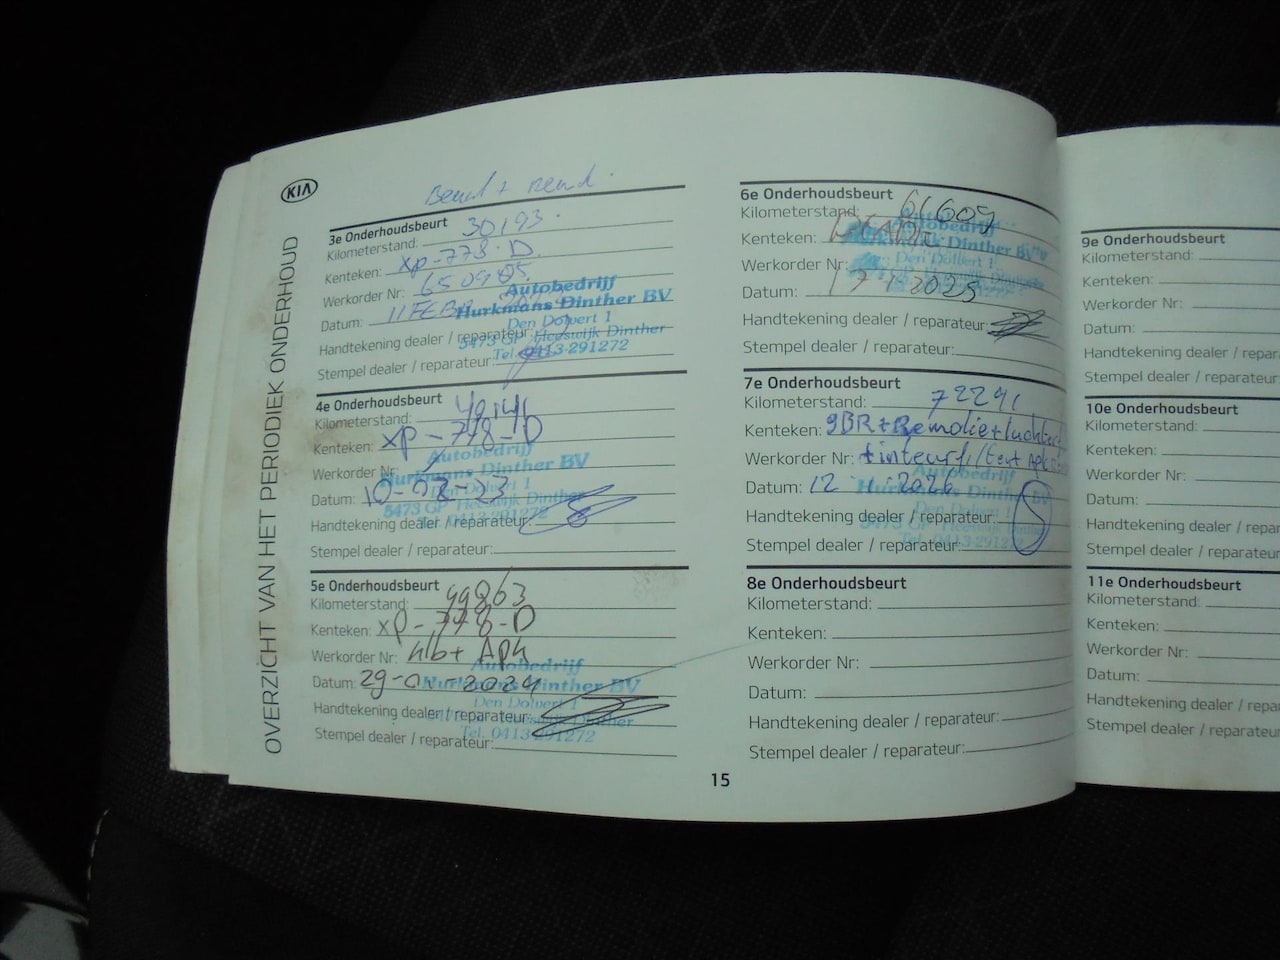 KIA
OVERZICHT VAN HET PERIODIEK ONDERHOUD
3e Onderhoudsbeurt
Kilometerstand: 30193
Kenteken: XP-778-D
Werkorder Nr: 650985
Datum: 11 FEB
Handtekening dealer / reparateur:
Stempel dealer / reparateur:
Autobedrijf
Hurkmans Dinther BV
Den Dolvert 1
5473 GP Heeswijk Dinther
Tel. 0413-291272
4e Onderhoudsbeurt
Kilometerstand:
Kenteken: XP-778-D
Werkorder Nr:
Datum:
Handtekening dealer / reparateur:
Stempel dealer / reparateur:
Autobedrijf
Hurkmans Dinther BV
Den Dolvert 1
5473 GP Heeswijk Dinther
Tel. 0413-291272
5e Onderhoudsbeurt
Kilometerstand:
Kenteken: XP-778-D
Werkorder Nr:
Datum: 29-01-2024
Handtekening dealer / reparateur:
Stempel dealer / reparateur:
Autobedrijf
Hurkmans Dinther BV
Den Dolvert 1
Tel. 0413-291272
6e Onderhoudsbeurt
Kilometerstand: 61609
Kenteken:
Werkorder Nr:
Datum: 2025
Handtekening dealer / reparateur:
Stempel dealer / reparateur:
Autobedrijf
Hurkmans Dinther BV
Den Dolvert 1
7e Onderhoudsbeurt
Kilometerstand: 72291
Kenteken: gBR+Remolie+
Werkorder Nr:
Datum: 12 1 2026
Handtekening dealer / reparateur:
Stempel dealer / reparateur:
Autobedrijf
Hurkmans Dinther BV
Den Dolvert 1
Tel. 0413-291272
8e Onderhoudsbeurt
Kilometerstand:
Kenteken:
Werkorder Nr:
Datum:
Handtekening dealer / reparateur:
Stempel dealer / reparateur:
15
9e Onderhoudsbeurt
Kilometerstand:
Kenteken:
Werkorder Nr:
Datum:
Handtekening dealer / repar
Stempel dealer / reparat
10e Onderhoudsbeurt
Kilometerstand:
Kenteken:
Werkorder Nr:
Datum:
Handtekening dealer / r
Stempel dealer / repara
11e Onderhoudsbeurt
Kilometerstand:
Kenteken:
Werkorder Nr:
Datum:
Handtekening dealer / repa
Stempel dealer / reparat